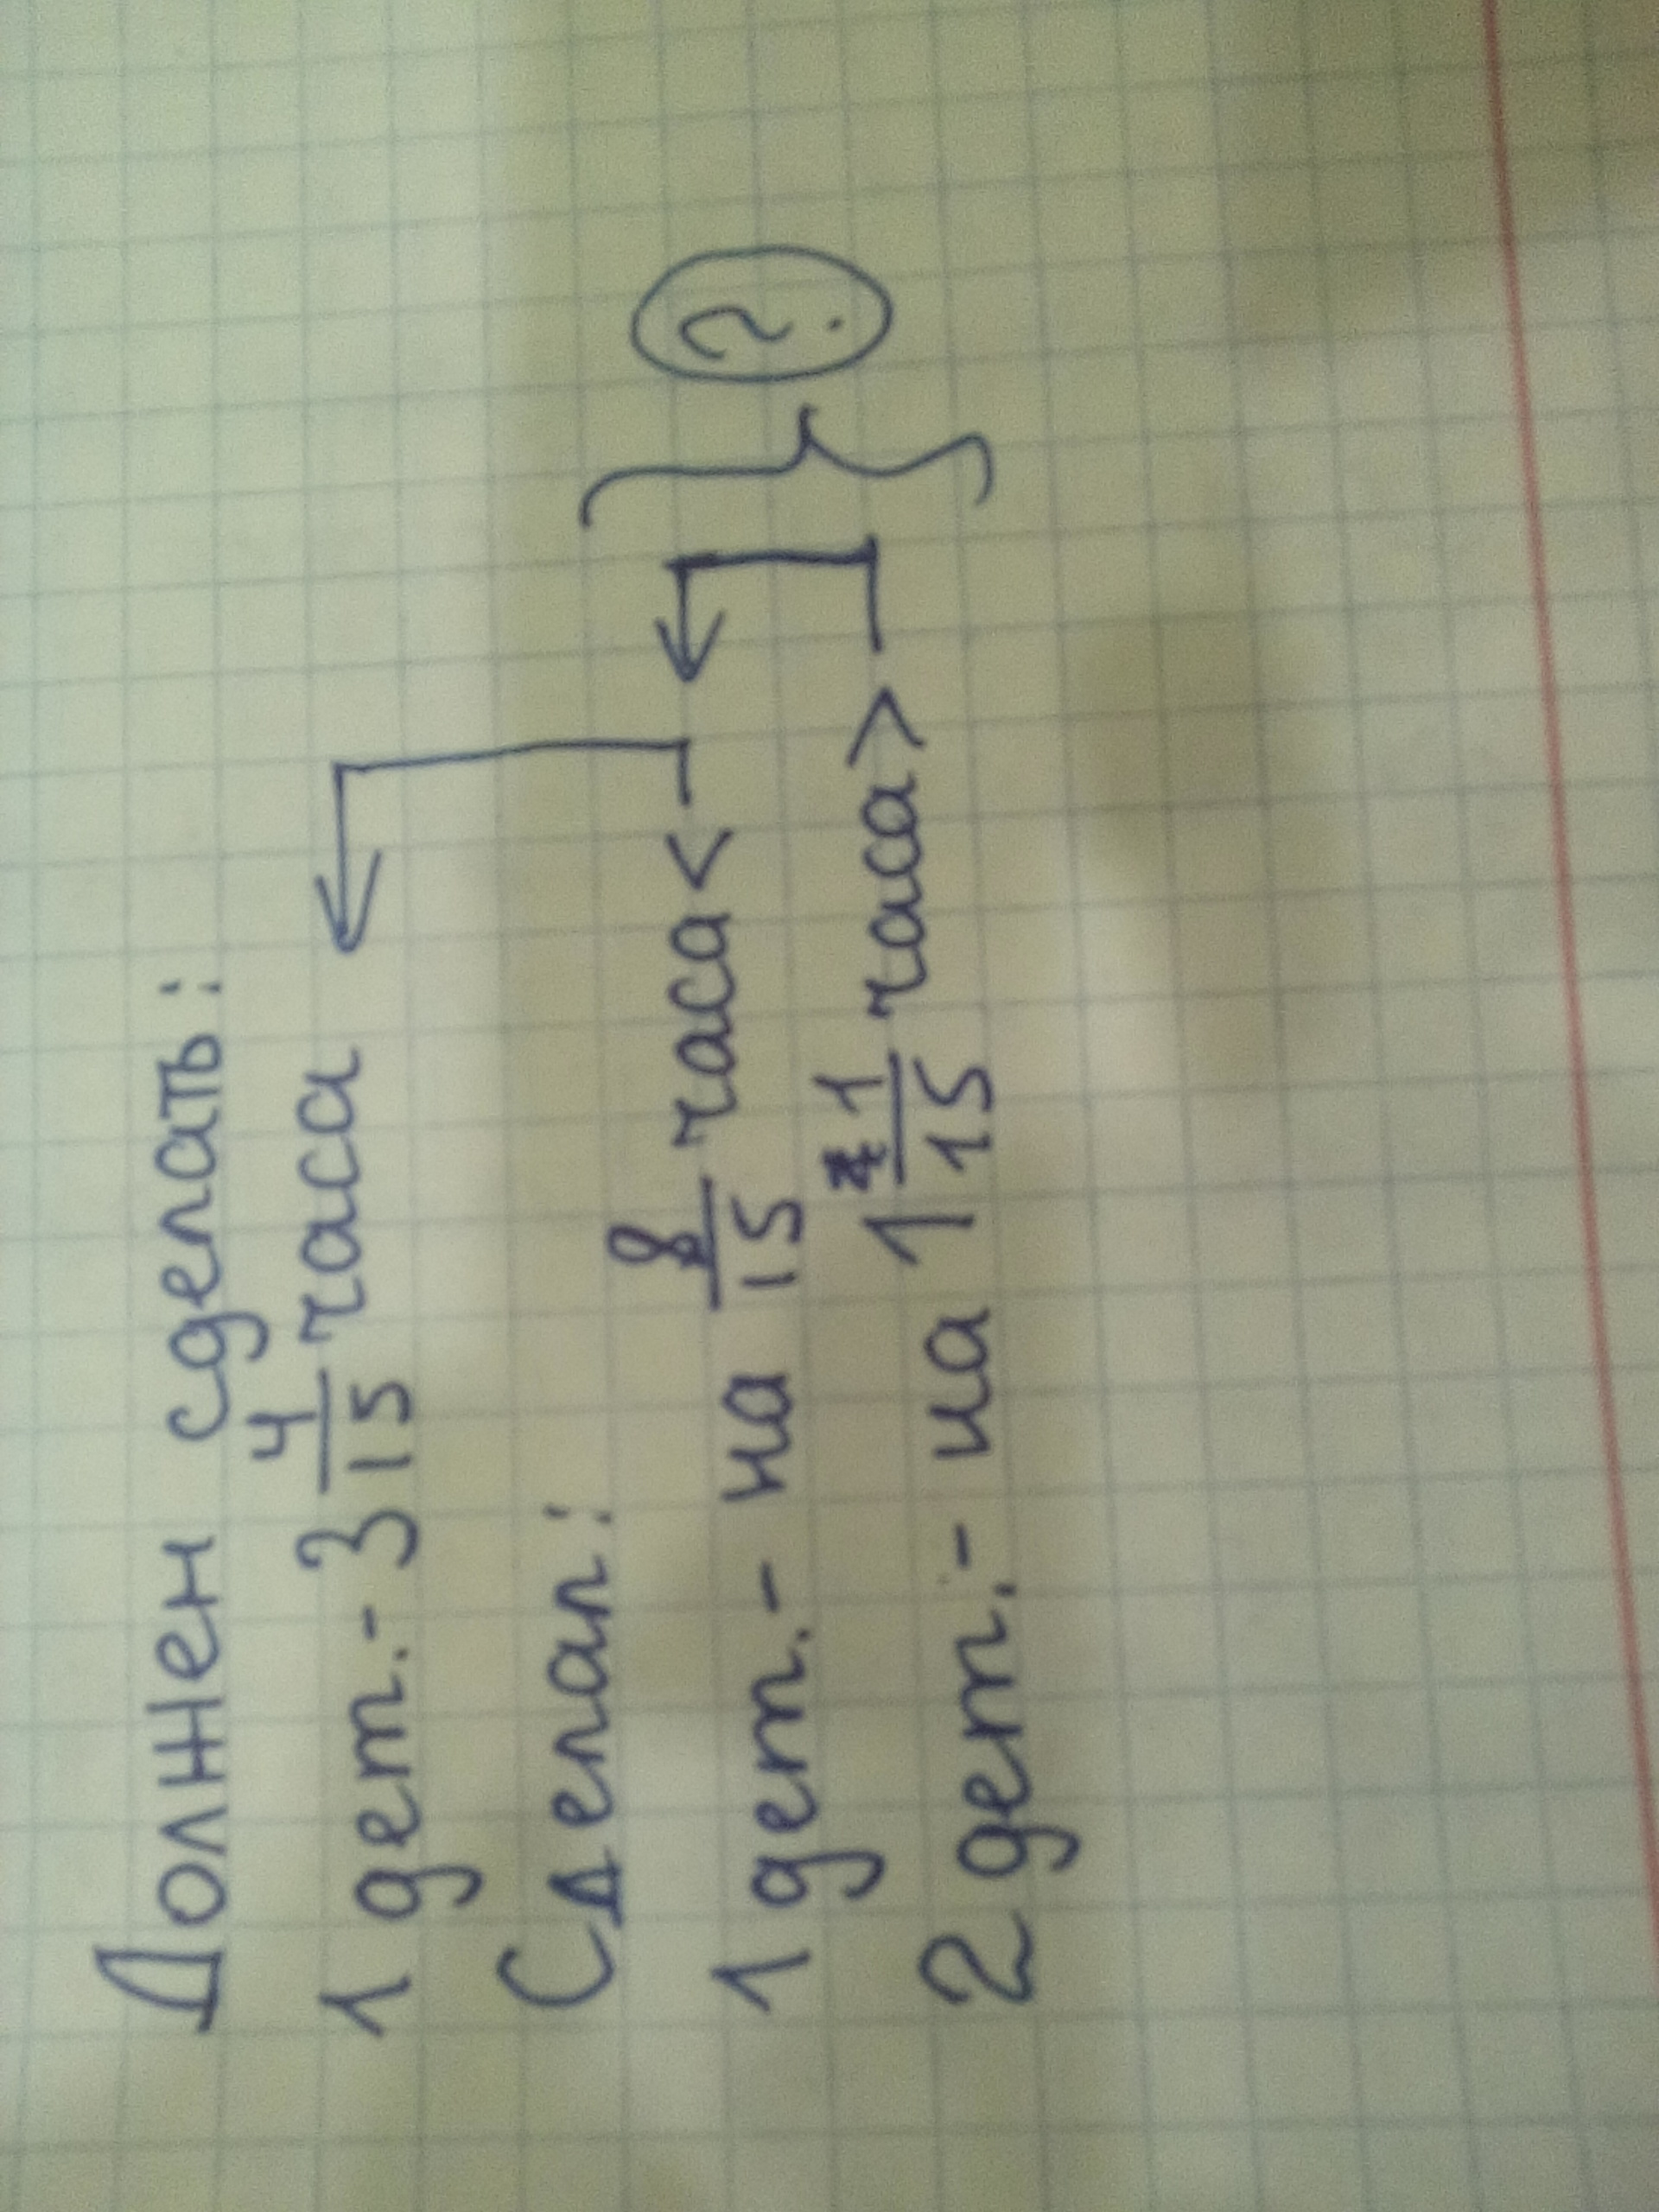 Должен сделать:
1 дет. - 3 4/15 часа
Сделал:
1 дет. - на 8/15 часа <
2 дет. - на 1 1/15 часа >
?